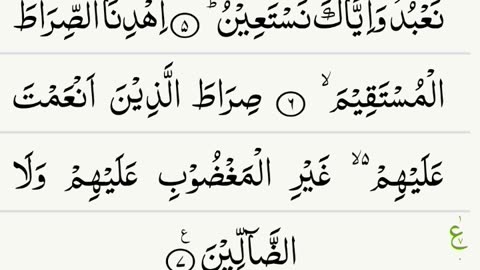 نَعْبُدُ وَاِيَّاكَ نَسْتَعِيْنُ ؕ ۵ اِهْدِنَا الصِّرَاطَ
الْمُسْتَقِيْمَ ۙ ۶ صِرَاطَ الَّذِيْنَ اَنْعَمْتَ
عَلَيْهِمْ ۙ۵ غَيْرِ الْمَغْضُوْبِ عَلَيْهِمْ وَلَا
الضَّآلِّيْنَ ۷ ع
ع